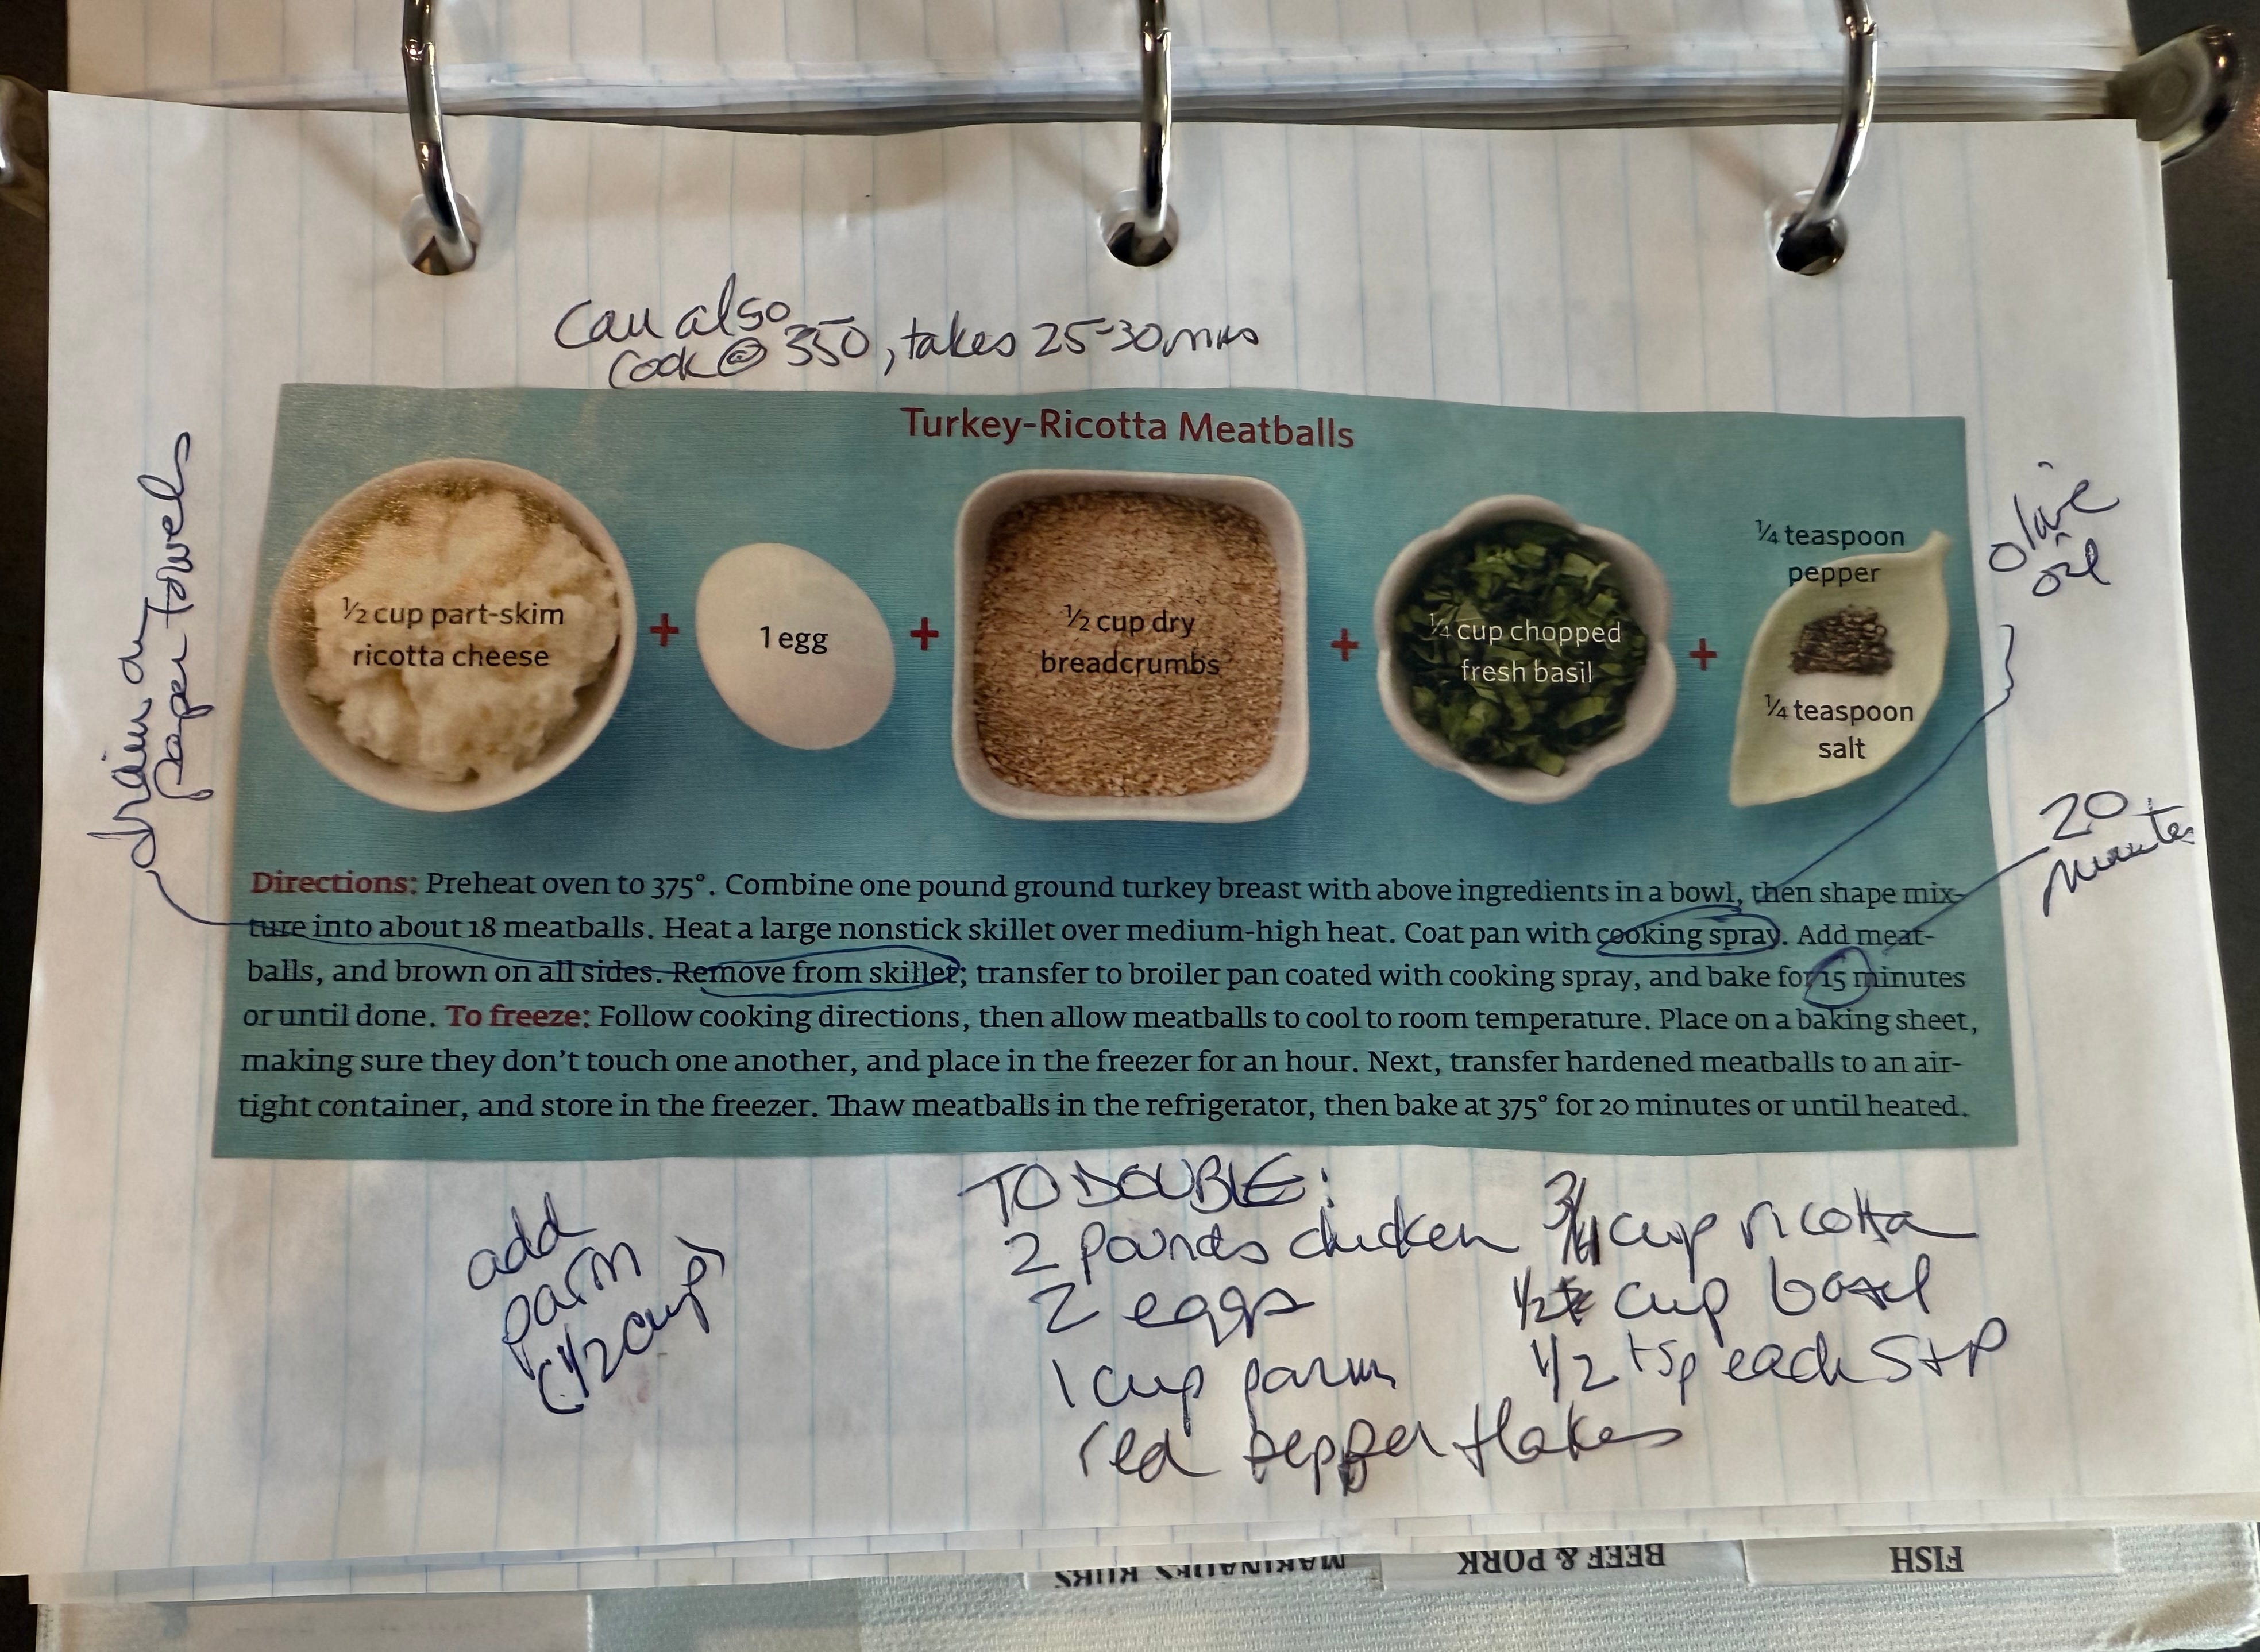 Can also
cook @ 350, takes 25-30 mins
Turkey-Ricotta Meatballs
½ cup part-skim
ricotta cheese
+
1 egg
+
½ cup dry
breadcrumbs
+
¼ cup chopped
fresh basil
+
¼ teaspoon
pepper
¼ teaspoon
salt
drain on
paper towels
olive
oil
20
minutes
Directions: Preheat oven to 375°. Combine one pound ground turkey breast with above ingredients in a bowl, then shape mix-
ture into about 18 meatballs. Heat a large nonstick skillet over medium-high heat. Coat pan with cooking spray. Add meat-
balls, and brown on all sides. Remove from skillet; transfer to broiler pan coated with cooking spray, and bake for 15 minutes
or until done. To freeze: Follow cooking directions, then allow meatballs to cool to room temperature. Place on a baking sheet,
making sure they don't touch one another, and place in the freezer for an hour. Next, transfer hardened meatballs to an air-
tight container, and store in the freezer. Thaw meatballs in the refrigerator, then bake at 375° for 20 minutes or until heated.
add
parm
(1/2 cup)
TO DOUBLE:
2 pounds chicken
2 eggs
1 cup parm
red pepper flakes
3/4 cup ricotta
1/2 cup basil
1/2 tsp each S+P
MARINADES, RUBS
BEEF & PORK
FISH